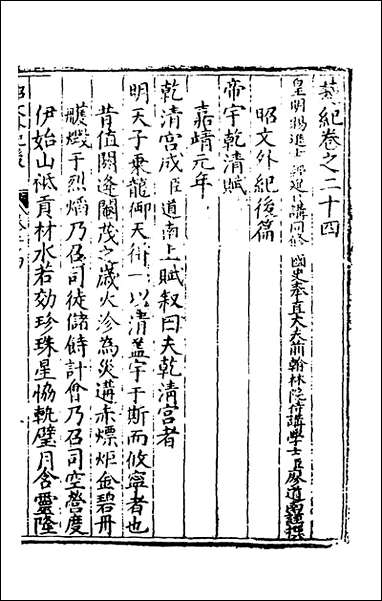 藝紀卷之二十四
皇明賜進士 經筵日講同修 國史奉直大夫前翰林院侍講學士臣廖道南謹撰
昭文外紀後篇
帝宇乾清賦
嘉靖元年
乾清宮成臣道南上賦叙曰夫乾清宮者
明天子乘龍御天行一以清蓋宇于斯而攸寧者也
昔值閼逢閹茂之歲火沴為災遘赤熛炬金碧丹
雘燬于烈焰乃召司徒儲偫計會乃召司空營度
伊始山祗貢材水若効珍珠星協軌璧月含靈隆